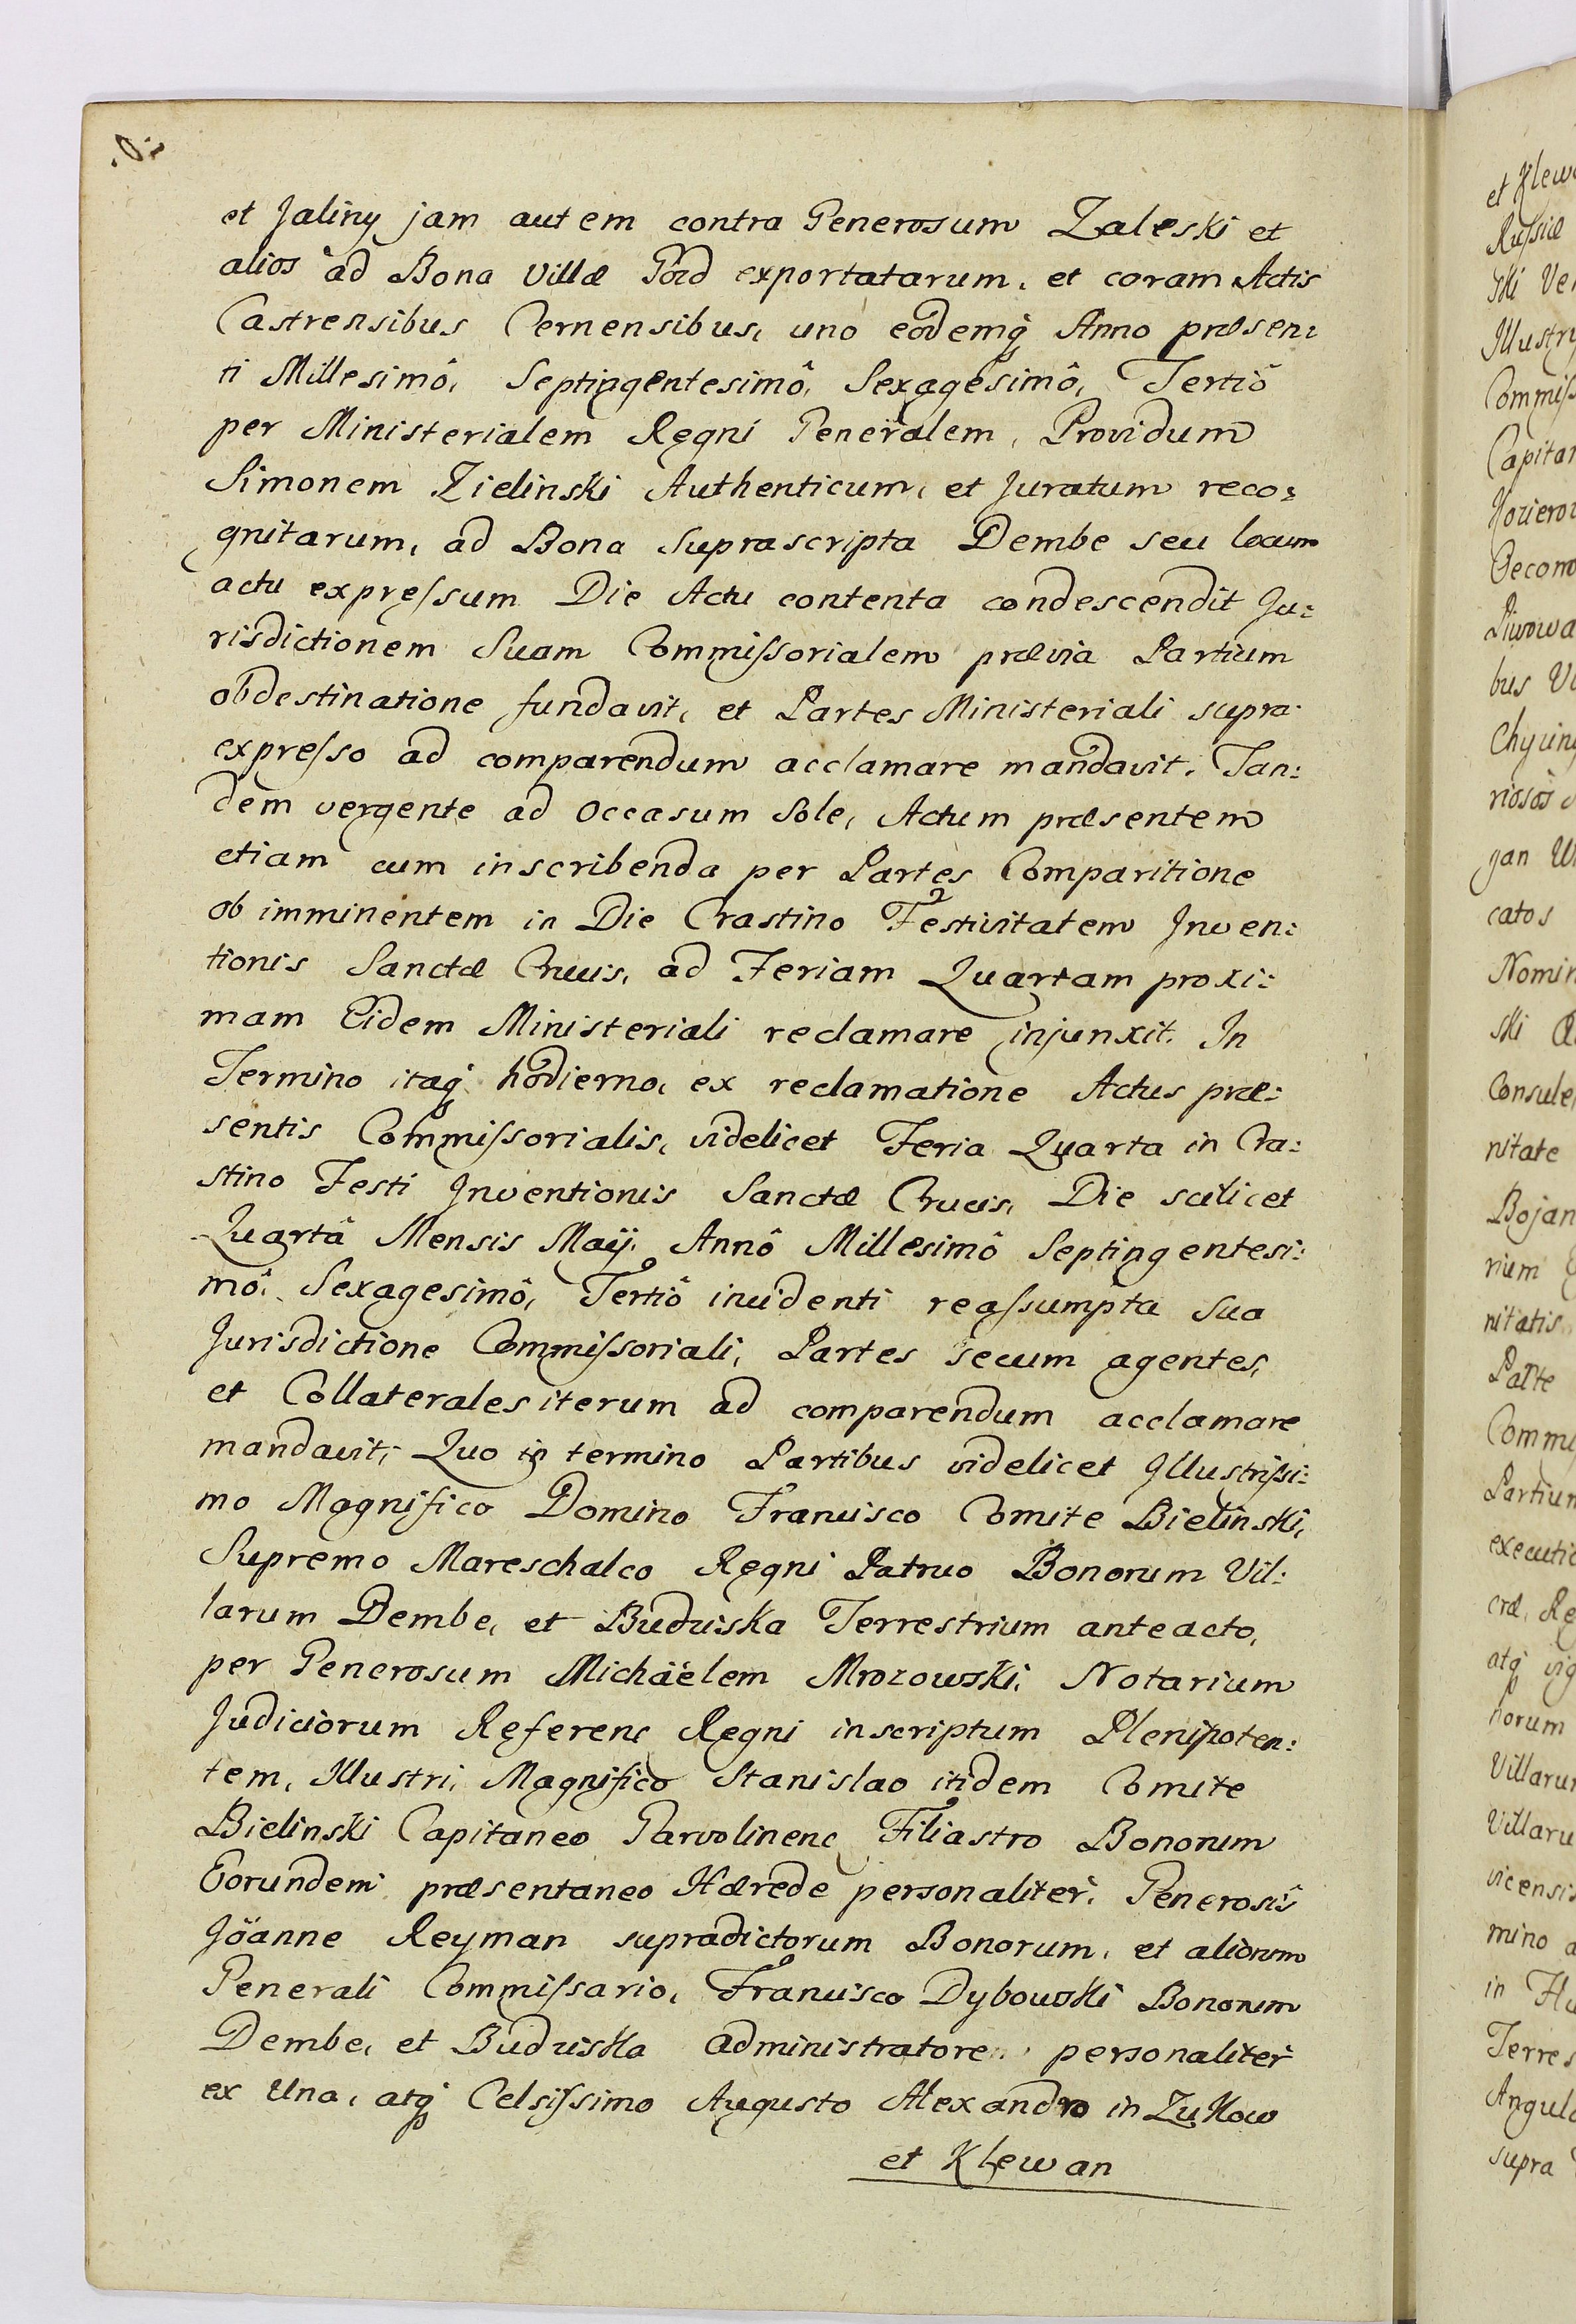 et Jaliny jam autem contra Generosum Zaleski et
alios ad Bona Villæ Gord exportatarum, et coram Actis
Castrensibus Cernensibus, uno eodemq̃ Anno præsen:
ti Millesimô, Septingentesimô, Sexagesimô, Tertiô
per Ministerialem Regni Generalem, Providum
Simonem Zielinski Authenticum, et Juratum reco:
gnitarum, ad Bona Suprascripta Dembe seu locum
actu expressum Die Actu contenta condescendit Ju:
risdictionem Suam Commissorialem prævia Partium
obdestinatione fundavit, et Partes Ministeriali supra
expresso ad comparendum acclamare mandavit. Tan:
dem vergente ad Occasum Sole, Actum præsentem
etiam cum inscribenda per Partes Comparitione
ob imminentem in Die Crastino Festivitatem Inven:
tionis Sanctæ Crucis, ad Feriam Quartam proxi:
mam Eidem Ministeriali reclamare injunxit. In
Termino itaq̃ hodierno, ex reclamatione Actus præ:
sentis Commissorialis, videlicet Feria Quarta in Cra:
stino Festi Inventionis Sanctæ Crucis, Die scilicet
Quartâ Mensis Maÿ. Annô Millesimô Septingentesi:
mô. Sexagesimô, Tertiô incidenti reassumpta Sua
Jurisdictione Commissoriali, Partes secum agentes,
et Collaterales iterum ad comparendum acclamare
mandavit, Quo in termino Partibus videlicet Illustrissi:
mo Magnifico Domino Francisco Comite Bielinski,
Supremo Mareschalco Regni Patruo Bonorum Vil:
larum Dembe, et Budziska Terrestrium anteacto,
per Generosum Michäelem Mrozowski, Notarium
Judiciorum Referenc Regni inscriptum Plenipoten:
tem, Illustri, Magnifico Stanislao itidem Comite
Bielinski Capitaneo Garwolinenc Filiastro Bonorum
Eorundem præsentaneo Hærede personaliter, Generosis
Jöanne Reyman supradictorum Bonorum, et aliorum
Generali Commissario, Francisco Dybowski Bonorum
Dembe, et Budziska administratore personaliter
ex Una, atq̃ Celsissimo Augusto Alexandro in Zukow
et Klewan
et Klew
Russiæ
ski
Illustr
Commiss
Capitan
Oecono
bus
riosos
gan
catos
Nomin
ski
Consule
nitate
Bojan
rium
nitatis
Parte
Comm
Partium
executio
atq̃
norum
Villarum
Villaru
vicensis
mino
in
Terres
Angul
supra